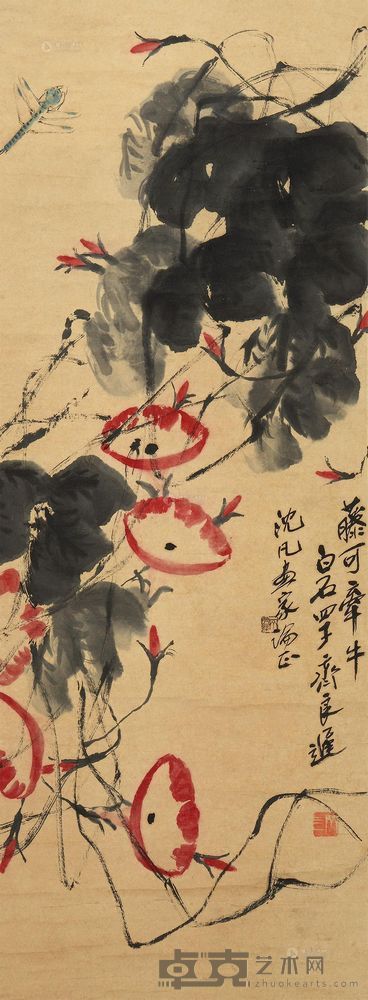 藤可牵牛
白石四子齐良迟
沈凡画家论正
卓克艺术网
www.zhuokearts.com